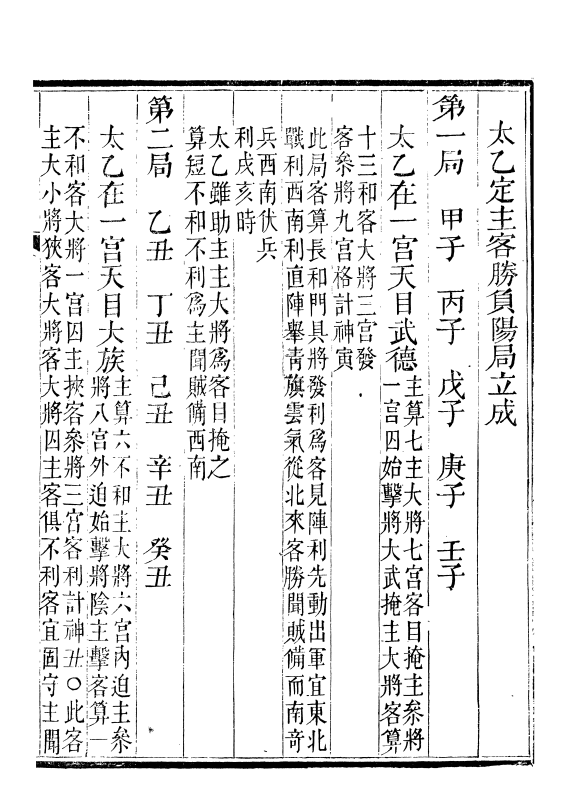 太乙定主客勝負陽局立成
第一局 甲子 丙子 戊子 庚子 壬子
太乙在一宮天目武德主算七主大將七宮客目掩主叅將
一宮囚始擊將大武掩主大將客算
十三和客大將三宮發
客叅將九宮格計神寅
此局客算長和門具將發利爲客見陣利先動出軍宜東北
戰利西南利直陣舉青旗雲氣從北來客勝聞賊備而南奇
兵西南伏兵
利戌亥時
太乙雖助主主大將爲客目掩之
算短不和不利爲主聞賊備西南
第二局 乙丑 丁丑 己丑 辛丑 癸丑
太乙在一宮天目大族主算六不和主大將六宮內迫主叅
將八宮外迫始擊將陰主擊客算一
不和客大將一宮囚主挾客叅將三宮客利計神丑○此客
主大小將狹客大將客大將囚主客俱不利客宜固守主聞